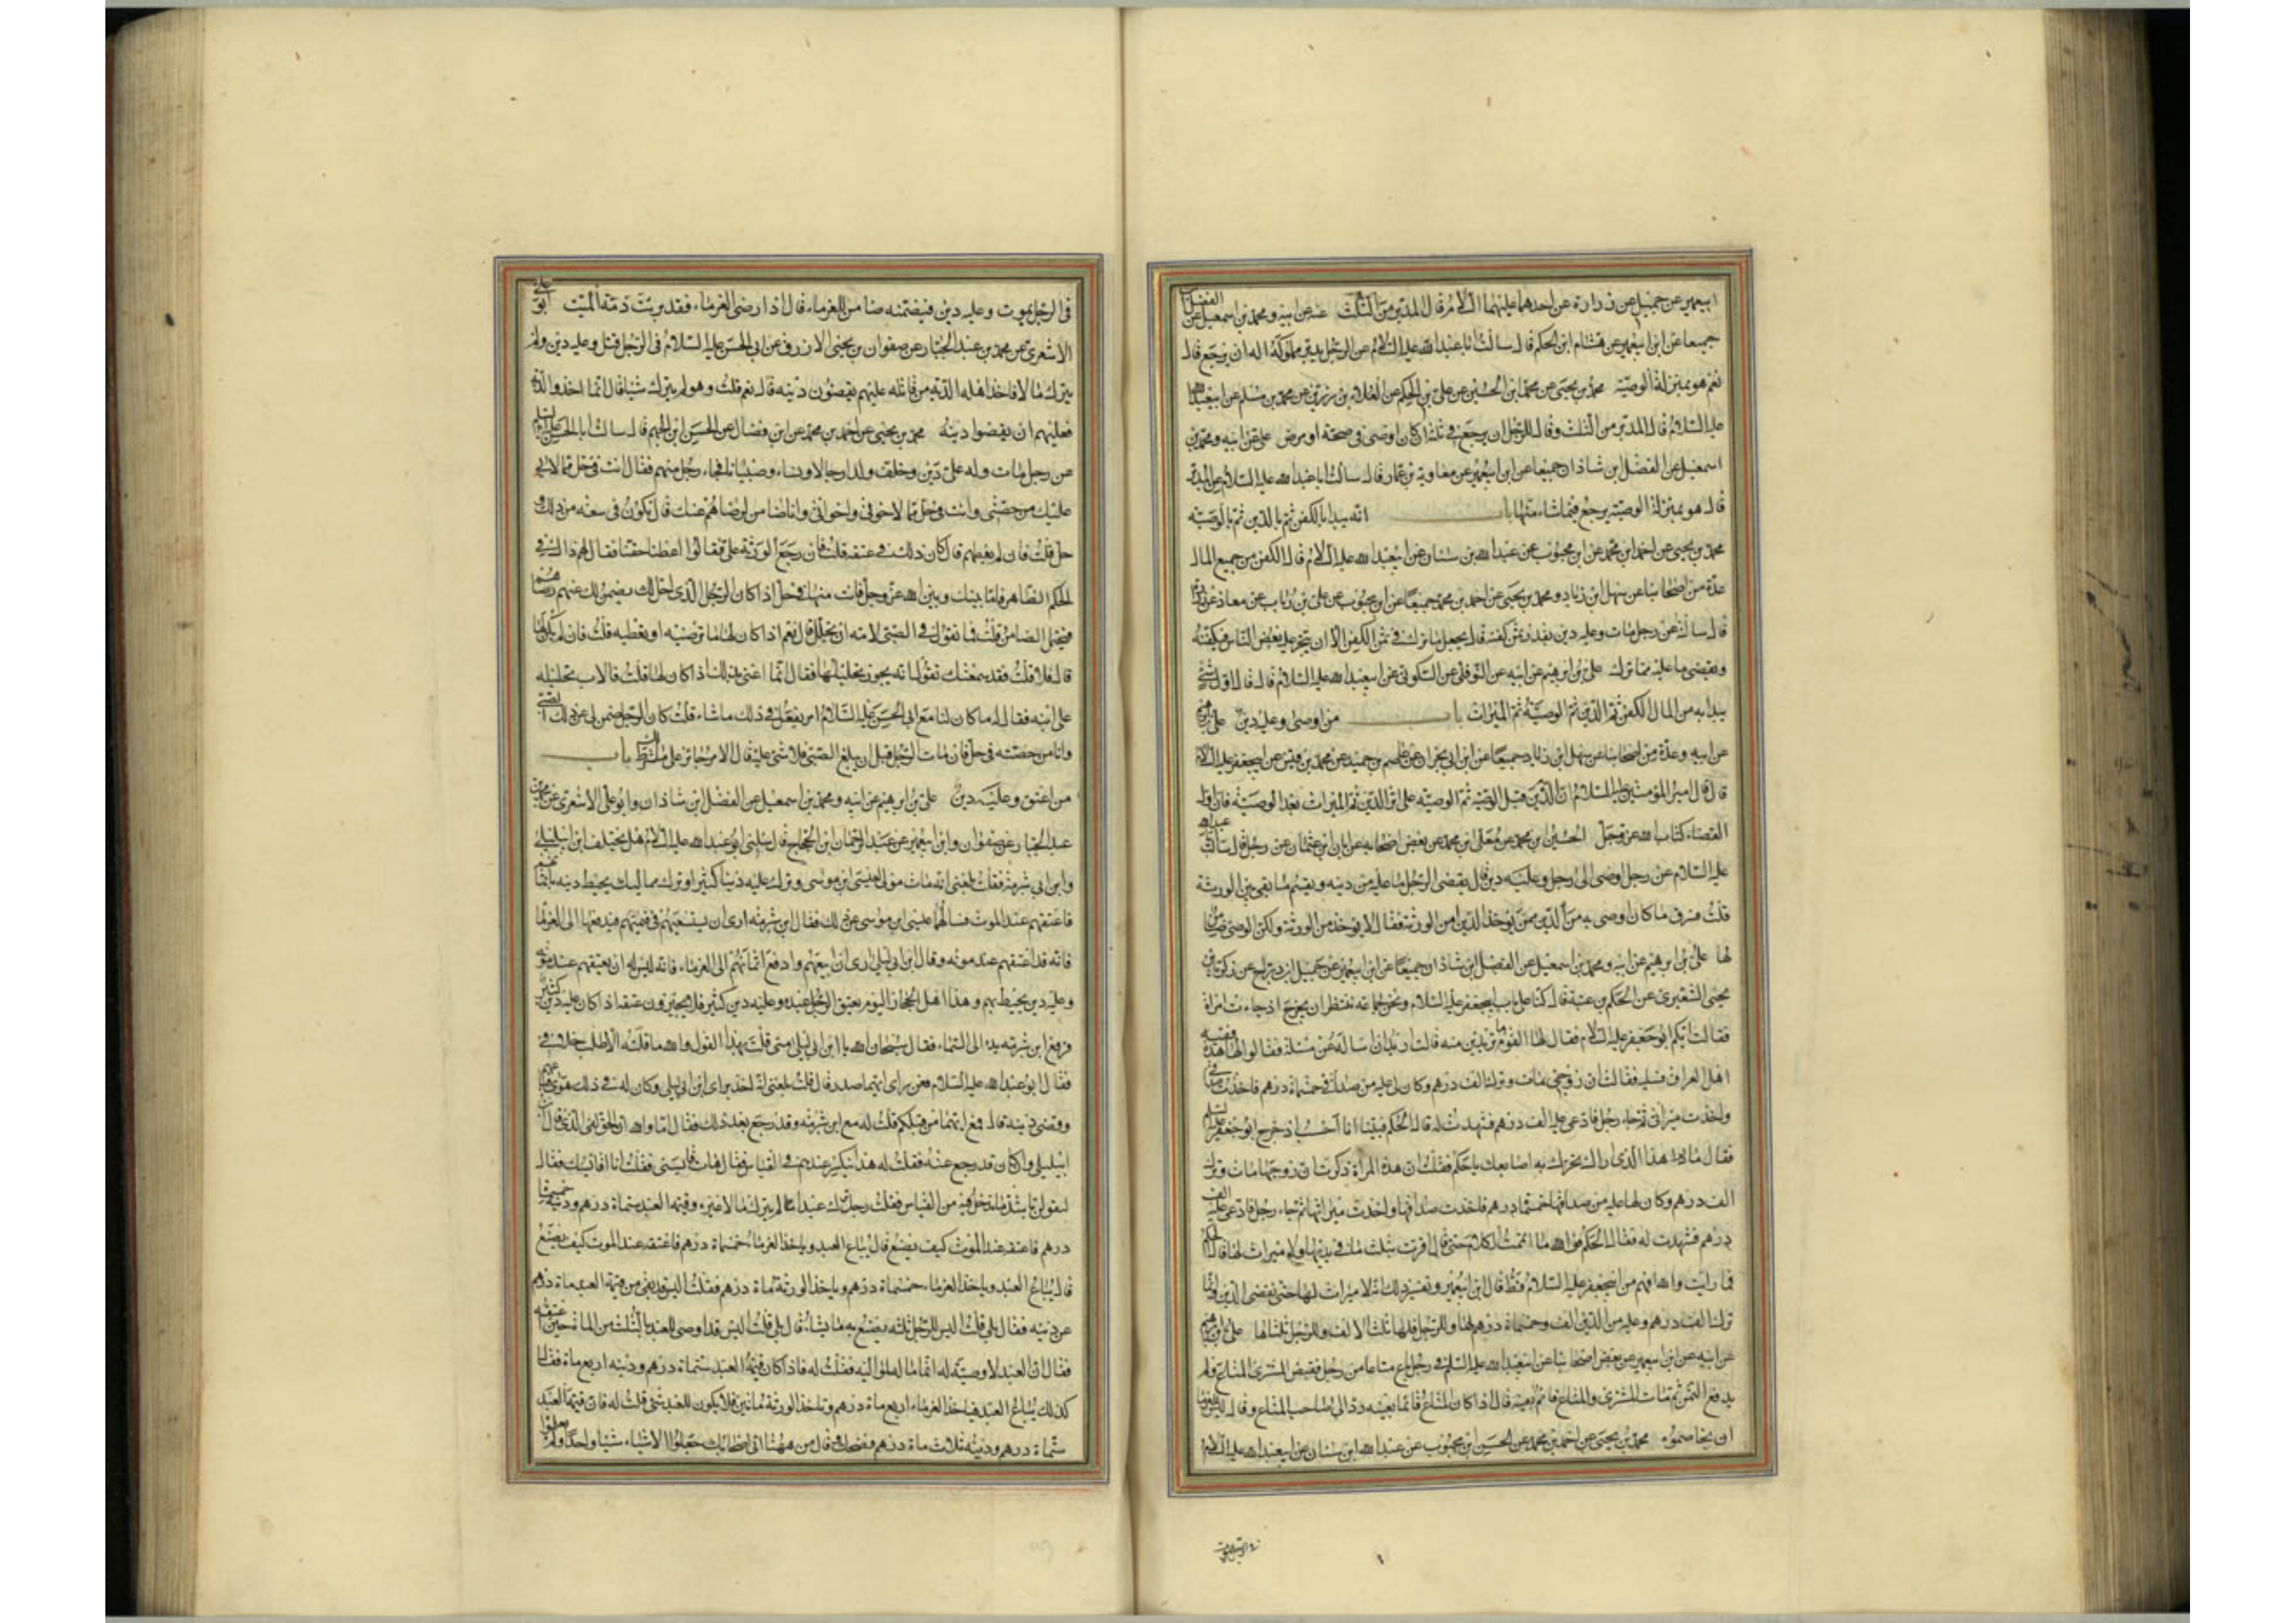 ابيعمير عن جميل عن زرارة عن احدهما عليهما السلام قال المدبر من الثلث عنه عن ابيه ومحمد بن اسمعيل عن الفضل
جميعا عن ابن ابيعمير عن هشام ابن الحكم قال سالت ابا عبدالله عليه السلام عن الرجل يدبر مملوكه اله ان يرجع قال
نعم هو بمنزلة الوصية محمد بن يحيى عن محمد ابن الحسين عن على بن الحكم عن العلاء بن رزين عن محمد بن مسلم عن ابيعبدالله
عليه السلام قال المدبر من الثلث وقال للرجل ان يرجع فى ثلثه ان كان اوصى فى صحة او مرض على عن ابيه ومحمد بن
اسمعيل عن الفضل ابن شاذان جميعا عن ابن ابيعمير عن معاوية بن عمار قال سالت ابا عبدالله عليه السلام عن المدبر
قال هو بمنزلة الوصية يرجع فيما شاء منها باب انه يبدا بالكفن ثم بالدين ثم بالوصية
محمد بن يحيى عن احمد ابن محمد عن ابن محبوب عن عبدالله بن سنان عن ابيعبدالله عليه السلام قال الكفن من جميع المال
عدة من اصحابنا عن سهل ابن زياد ومحمد بن يحيى عن احمد بن محمد جميعا عن ابن محبوب عن على بن رئاب عن معاذ عن زرارة
قال سالته عن رجل مات وعليه دين بقدر ثمن كفنه قال يجعل ما ترك فى ثمن الكفن الا ان يتجر عليه بعض الناس فيكفنه
ويقضى ما عليه مما ترك على بن ابرهيم عن ابيه عن النوفلى عن السكونى عن ابيعبدالله عليه السلام قال قال اول شئ
يبدا به من المال الكفن ثم الدين ثم الوصية ثم الميراث باب من اوصى وعليه دين على بن ابرهيم
عن ابيه وعدة من اصحابنا عن سهل ابن زياد جميعا عن ابن ابى نجران عن عاصم بن حميد عن محمد بن قيس عن ابيجعفر عليه السلام
قال قال امير المؤمنين عليه السلام ان الدين قبل الوصية ثم الوصية على اثر الدين ثم الميراث بعد الوصية فان اول
القضاء كتاب الله عز وجل الحسين ابن محمد عن معلى ابن محمد عن بعض اصحابه عن ابان ابن عثمان عن رجل قال سالت ابا عبدالله
عليه السلام عن رجل اوصى الى رجل وعليه دين قال يقضى الرجل ما عليه من دينه ويقسم ما بقى بين الورثة
قلت فسرق ما كان اوصى به من الدين ممن يوخذ الدين امن الورثة فقال لا يوخذ من الورثة ولكن الوصى ضامن
لها على بن ابرهيم عن ابيه ومحمد بن اسمعيل عن الفضل ابن شاذان جميعا عن ابن ابيعمير عن جميل ابن دراج عن زكريا بن
يحيى الشعيرى عن الحكم بن عتيبة قال كنا على باب ابيجعفر عليه السلام ونحن جماعة ننتظر ان يخرج اذ جاءت امراة
فقالت ايكم ابو جعفر عليه السلام فقال لها القوم ما تريدين منه قالت اريد ان اساله عن مسئلة فقالوا لها هذا فقيه
اهل العراق فسليه فقالت ان زوجى مات وترك الف درهم وكان لى عليه من صداقى خمسماة درهم فاخذت صداقى
واخذت ميراثى ثم جاء رجل فادعى عليه الف درهم فشهدت له قال الحكم فبينا انا احسب اذ خرج ابو جعفر عليه السلم
فقال ما هذا الذى اراك تحرك به اصابعك يا حكم فقلت ان هذه المراة ذكرت ان زوجها مات وترك
الف درهم وكان لها عليه من صداقها خمسماة درهم فاخذت صداقها واخذت ميراثها ثم جاء رجل فادعى عليه الف
درهم فشهدت له فقال الحكم فوالله ما اتممت الكلام حتى قال اقرت بثلث ما فى يديها ولا ميراث لها قال الحكم
فما رايت والله افهم من ابيجعفر عليه السلام قط قال ابن ابيعمير وتفسير ذلك انه لا ميراث لها حتى تقضى الدين وانما
ترك الف درهم وعليه من الدين الف وخمسماة درهم لها وللرجل فلها ثلث الالف وللرجل ثلثاها على بن ابرهيم
عن ابيه عن ابن ابيعمير عن بعض اصحابنا عن ابيعبدالله عليه السلم فى رجل باع متاعا من رجل فقبض المشترى المتاع ولم
يدفع الثمن ثم مات المشترى والمتاع قائم بعينه قال اذا كان المتاع قائما بعينه رد الى صاحب المتاع وقال ليس للغرماء
ان يخاصموه محمد بن يحيى عن احمد بن محمد عن الحسن ابن محبوب عن عبدالله ابن سنان عن ابيعبدالله عليه السلام
فى الرجل يموت وعليه دين فيضمنه ضامن للغرماء قال اذا رضى الغرماء فقد برئت ذمة الميت ابو على
الاشعرى عن محمد بن عبد الجبار عن صفوان بن يحيى الازرق عن ابى الحسن عليه السلام فى الرجل قتل وعليه دين ولم
يترك مالا فاخذ اهله الدية من قاتله عليهم يقضون دينه قال نعم قلت وهو لم يترك شيئا قال انما اخذوا الدية
فعليهم ان يقضوا دينه محمد بن يحيى عن احمد بن محمد عن ابن فضال عن الحسن ابن الجهم قال سالت ابا الحسن عليه السلم
عن رجل مات وله على دين وخلف ولدا رجالا ونساء وصبيانا فجاء رجل منهم فقال انت فى حل مما لابى
عليك من حصتى وانت فى حل مما لاخوتى واخواتى وانا ضامن لرضاهم عنك قال تكون فى سعة من ذلك و
حل قلت فان لم يعطهم قال كان ذلك فى عنقه قلت فان رجع الورثة على فقالوا اعطنا حقنا فقال لهم ذلك فى
الحكم الظاهر فاما بينك وبين الله عز وجل فانت منها فى حل اذا كان الرجل الذى احل لك يضمن لك عنهم رضاهم
فيحتمل الضامن قلت فما تقول فى الصبى لامه ان يحلل قال نعم اذا كان لها ما ترضيه او تعطيه قلت فان لم يكن لها
قال فلا قلت فقد سمعتك تقول انه يجوز تحليلها فقال انما اعنى بذلك اذا كان لها قلت فالاب يحلل له
على ابنه فقال له ما كان لنا مع ابى الحسن عليه السلام امر يفعل فى ذلك ما شاء قلت كان الرجل ضمن لى عن ذلك الصبى
وانا من حصته فى حل فان مات الرجل قبل ان يبلغ الصبى فلا شئ عليه قال الامر جائز على ما شرط لك باب
من اعتق وعليه دين على بن ابرهيم عن ابيه ومحمد بن اسمعيل عن الفضل ابن شاذان وابو على الاشعرى عن محمد بن
عبد الجبار عن صفوان وابن ابيعمير عن عبد الرحمان ابن الحجاج قال سالنى ابو عبدالله عليه السلام هل يختلف ابن ابيليلى
وابن ابى شبرمة فقلت بلغنى انه مات مولى لعيسى ابن موسى وترك عليه دينا كثيرا وترك مماليك يحيط دينه باثمانهم
فاعتقهم عند الموت فسالهما عيسى ابن موسى عن ذلك فقال ابن شبرمة ارى ان يستسعيهم فى قيمتهم فيدفعها الى الغرماء
فانه قد اعتقهم عند موته وقال ابن ابى ليلى ارى ان ابيعهم وادفع اثمانهم الى الغرماء فانه ليس له ان يعتقهم عند موته
وعليه دين يحيط بهم وهذا اهل الحجاز اليوم يعتق الرجل عبده وعليه دين كثير فلا يجيزون عتقه اذا كان عليه دين كثير
فرفع ابن شبرمة يده الى السماء فقال سبحان الله يا ابن ابى ليلى متى قلت بهذا القول والله ما قلته الا طلب خلافى
فقال ابو عبدالله عليه السلام فعن راى ايهما صدر قال قلت بلغنى انه اخذ براى ابن ابى ليلى وكان له فى ذلك هوى فباعهم
وقضى دينه قال فمع ايهما من قبلكم قلت له مع ابن شبرمة وقد رجع بعد ذلك فقال اما والله ان الحق لفى الذى قال ابن
ابيليلى وان كان قد رجع عنه فقلت له هذا ينكسر عندهم فى القياس فقال هات قايسنى فقلت انا اقايسك فقال
لتقولن باشد ما تدخل فيه من القياس فقلت رجل ترك عبدا لم يترك مالا غيره وقيمة العبد ستماة درهم ودينه خمسماة
درهم فاعتقه عند الموت كيف يصنع قال يباع العبد وياخذ الغرماء خمسماة درهم فاعتقه عند الموت كيف يصنع
قال يباع العبد وياخذ الغرماء خمسماة درهم وياخذ الورثة ماة درهم فقلت اليس قد بقى من قيمة العبد ماة درهم
عن دينه فقال بلى قلت اليس للرجل ثلثه يصنع به ما يشاء قال بلى قلت اليس قد اوصى للعبد بالثلث من الماة حين عتقه
فقال ان العبد لا وصية له انما ماله لمواليه فقلت له فاذا كان قيمة العبد ستماة درهم ودينه اربع ماة فقال
كذلك يباع العبد فياخذ الغرماء اربع ماة درهم وياخذ الورثة مائتين فلا يكون للعبد شئ قلت له فان قيمة العبد
ستماة درهم ودينه ثلاث ماة درهم فضحك وقال من ههنا اتى اصحابك جعلوا الاشياء شيئا واحدا ولم يعلموا